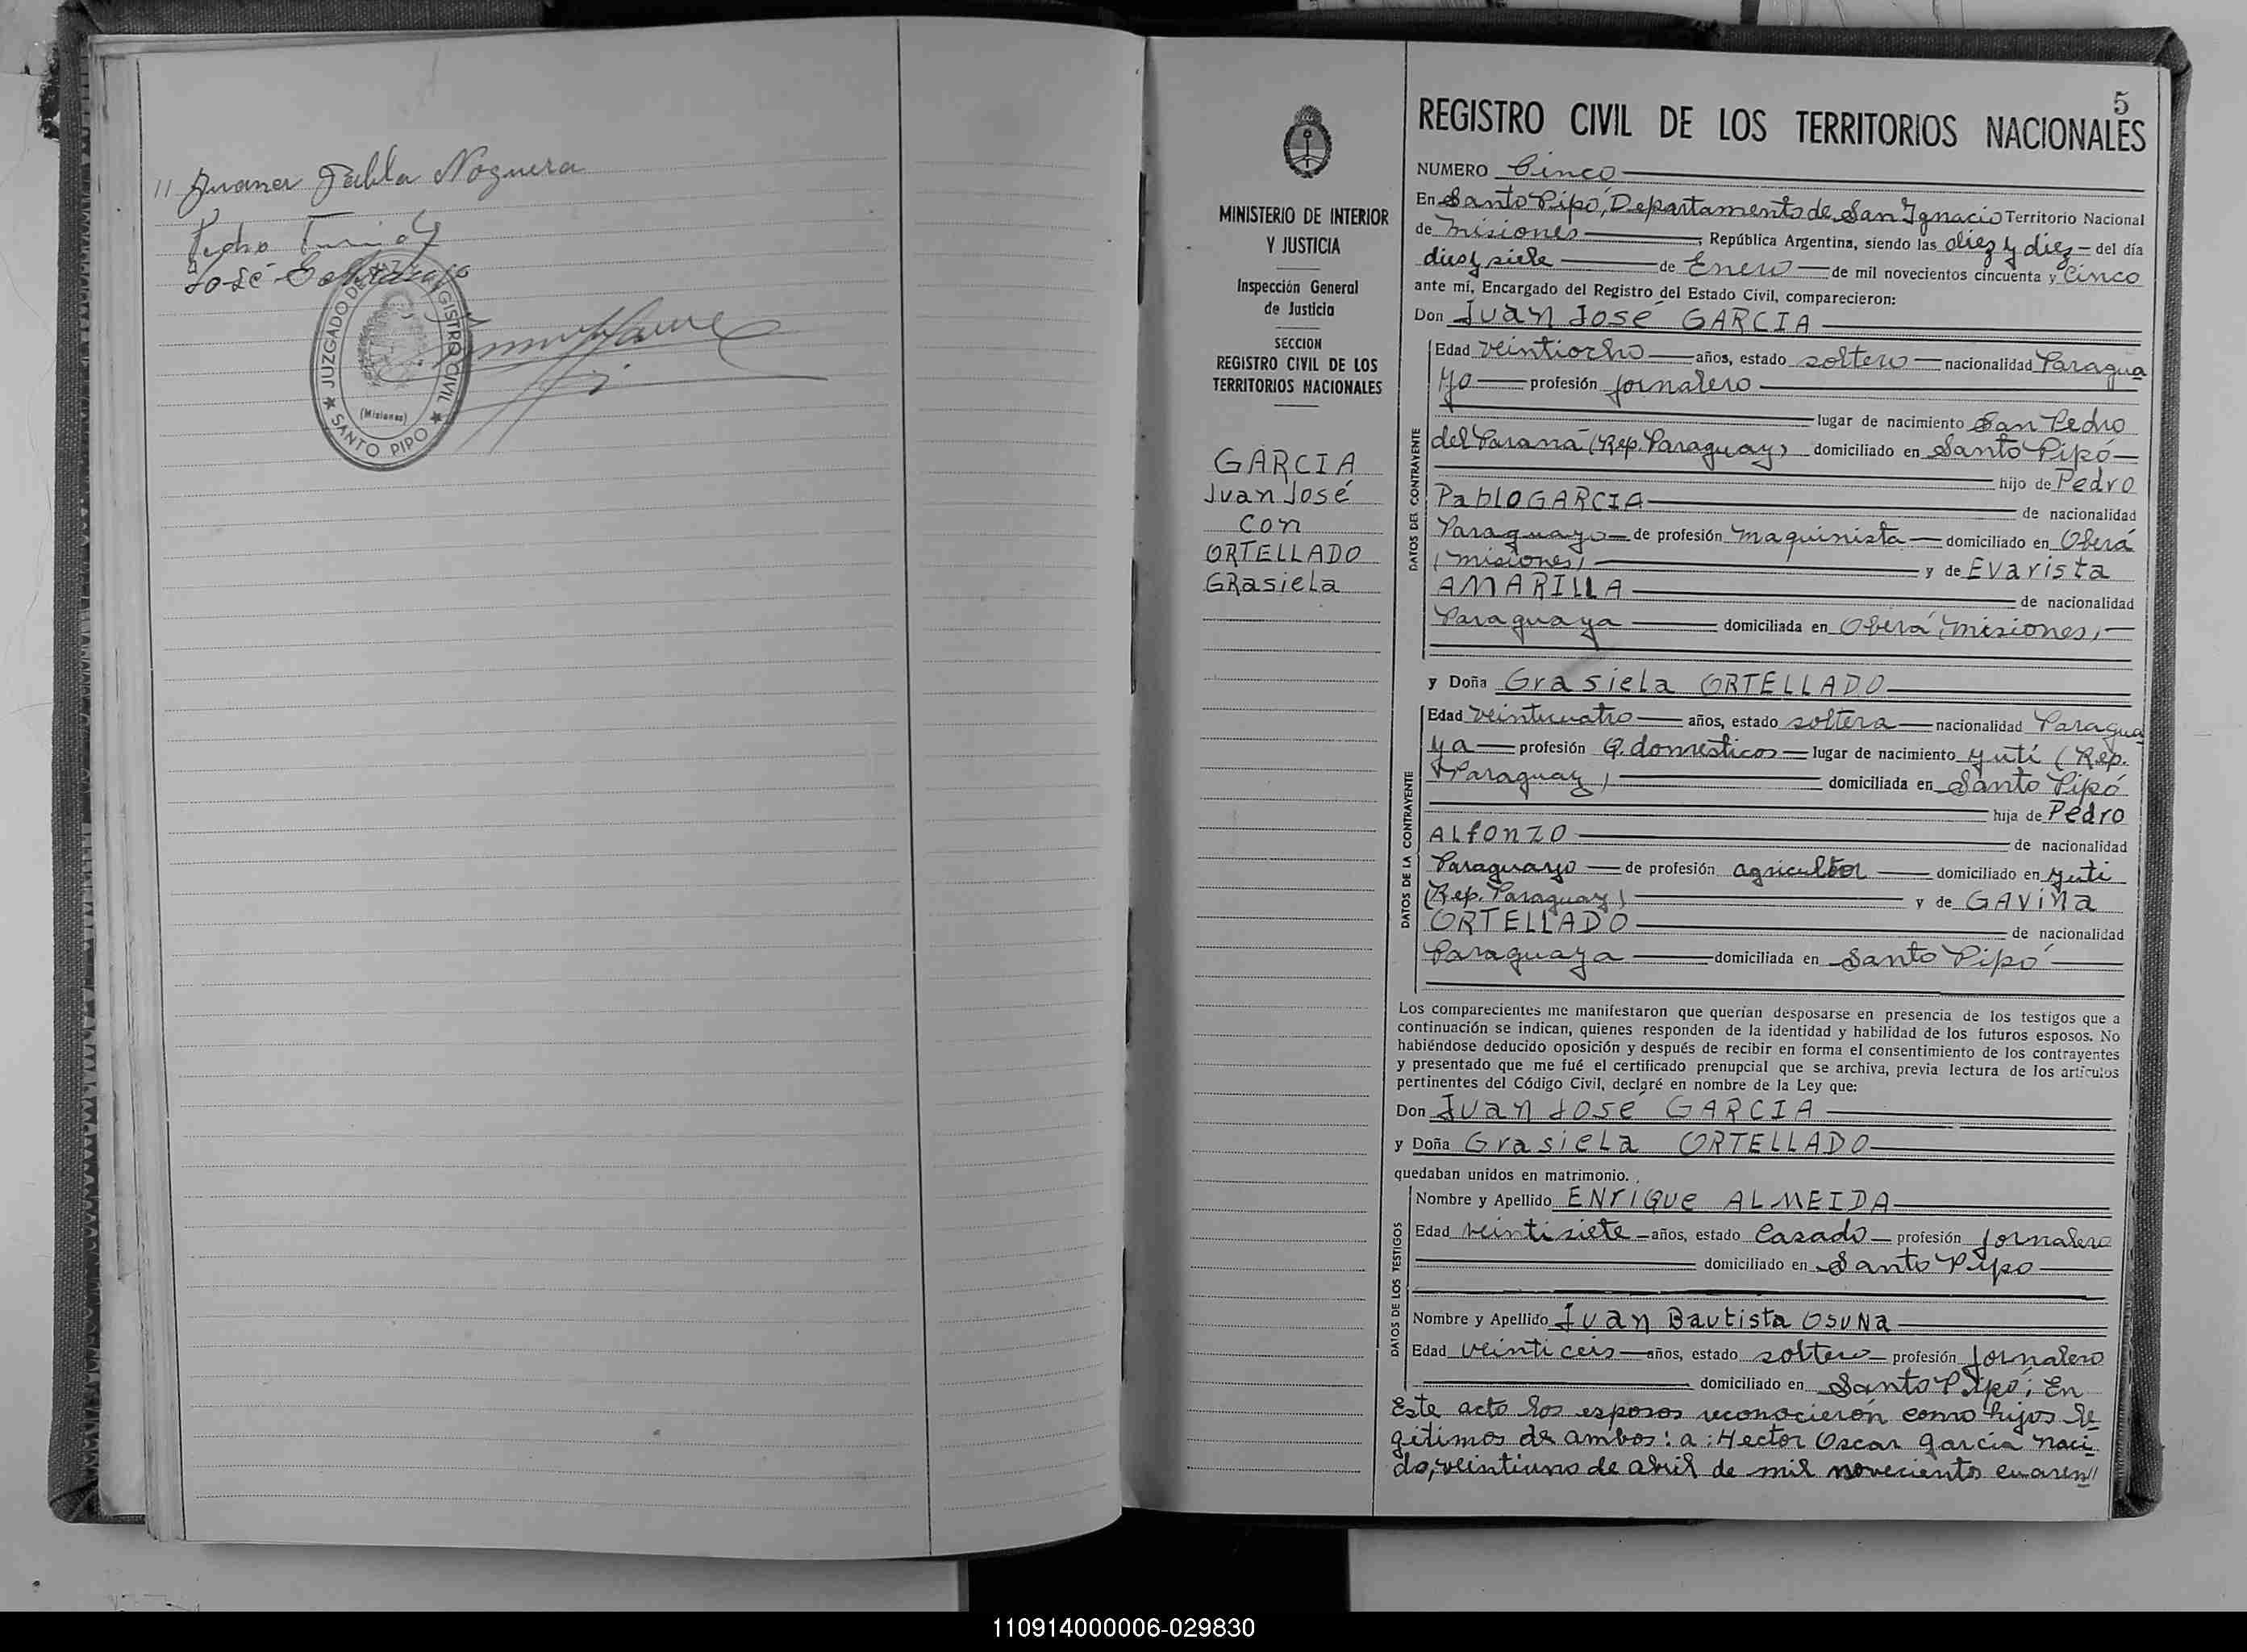 // Juana Pabla Noguera
Pedro
José
JUZGADO DE REGISTRO CIVIL
(Misiones)
★ SANTO PIPO ★
MINISTERIO DE INTERIOR
Y JUSTICIA
Inspección General
de Justicia
SECCION
REGISTRO CIVIL DE LOS
TERRITORIOS NACIONALES
GARCIA
Juan José
con
ORTELLADO
GRasiela
5
REGISTRO CIVIL DE LOS TERRITORIOS NACIONALES
NUMERO Cinco
En Santo Pipó, Departamento de San Ygnacio Territorio Nacional
de Misiones, República Argentina, siendo las diez y diez del día
diez y siete de Enero de mil novecientos cincuenta y Cinco
ante mí, Encargado del Registro del Estado Civil, comparecieron:
Don Juan José GARCIA
DATOS DEL CONTRAYENTE
Edad veintiocho años, estado soltero nacionalidad Paragua
yo profesión jornalero
lugar de nacimiento San Pedro
del Paraná (Rep. Paraguay) domiciliado en Santo Pipó
hijo de Pedro
Pablo GARCIA de nacionalidad
Paraguayo de profesión maquinista domiciliado en Oberá
(misiones) y de Evarista
AMARILLA de nacionalidad
Paraguaya domiciliada en Oberá (misiones)
y Doña Grasiela ORTELLADO
DATOS DE LA CONTRAYENTE
Edad veinticuatro años, estado soltera nacionalidad Paragua
ya profesión Q. domésticos lugar de nacimiento Yutí (Rep.
Paraguay) domiciliada en Santo Pipó
hija de Pedro
ALfONZO de nacionalidad
Paraguayo de profesión agricultor domiciliado en Yuti
(Rep. Paraguay) y de GAVINa
ORTELLADO de nacionalidad
Paraguaya domiciliada en Santo Pipó
Los comparecientes me manifestaron que querían desposarse en presencia de los testigos que a
continuación se indican, quienes responden de la identidad y habilidad de los futuros esposos. No
habiéndose deducido oposición y después de recibir en forma el consentimiento de los contrayentes
y presentado que me fué el certificado prenupcial que se archiva, previa lectura de los artículos
pertinentes del Código Civil, declaré en nombre de la Ley que:
Don Juan José GARCIA
y Doña Grasiela ORTELLADO
quedaban unidos en matrimonio.
DATOS DE LOS TESTIGOS
Nombre y Apellido ENrIQUe ALMEIDA
Edad veintisiete años, estado Casado profesión jornalero
domiciliado en Santo Pipo
Nombre y Apellido Juan Bautista OSUNa
Edad veinticeis años, estado soltero profesión jornalero
domiciliado en Santo Pipó; En
Este acto los esposos reconocieron como hijos le-
gitimos de ambos: a: Hector Oscar Garcia naci-
do, veintiuno de abril de mil novecientos cuaren//
110914000006-029830